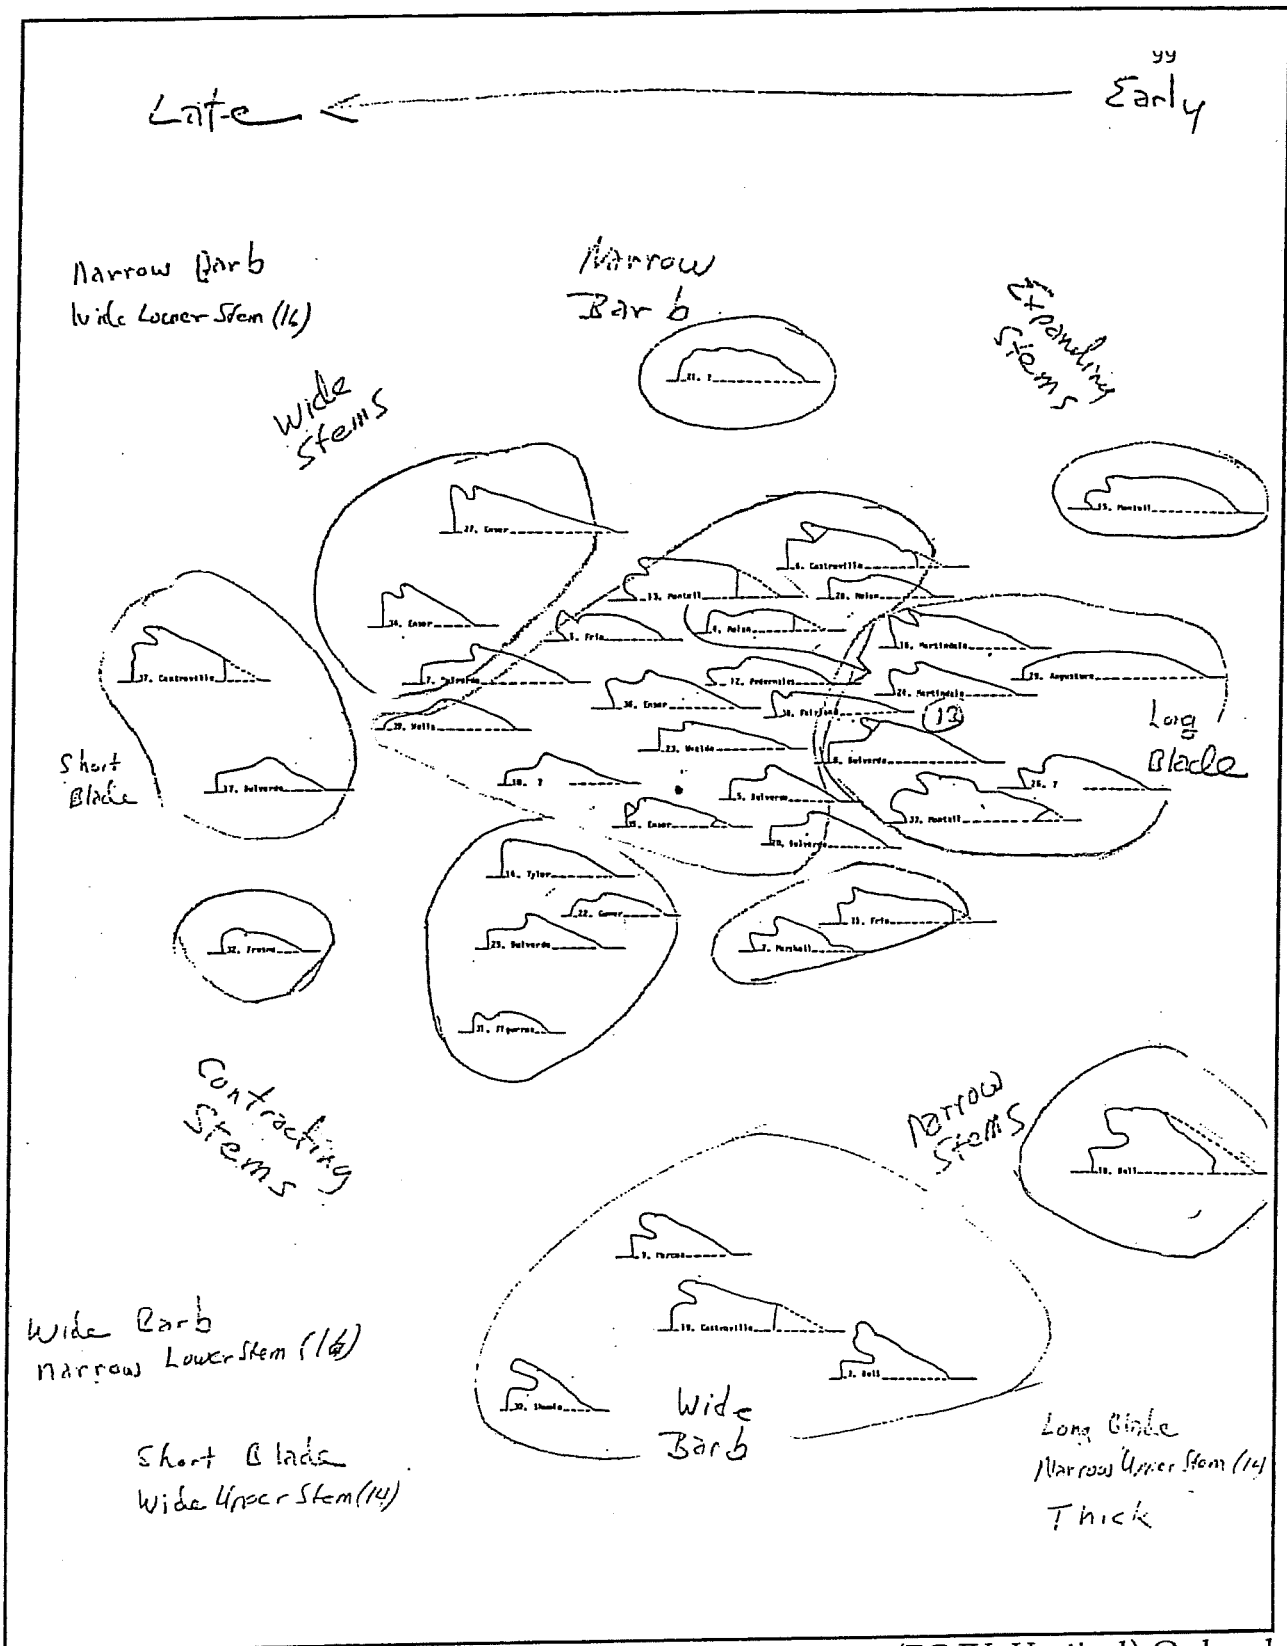 yy
Late
Early
Narrow Barb
Wide Lower Stem (16)
Narrow
Barb
Expanding
Stems
Wide
Stems
21. ?
15. Montell
27. Ensor
6. Castroville
13. Montell
20. Nolan
34. Ensor
5. Frio
4. Nolan
16. Martindale
37. Castroville
7. Bulverde
12. Pedernales
24. Martindale
29. Angostura
36. Ensor
38. Fairland
13
29. Wells
23. Uvalde
8. Bulverde
Long
Blade
Short
Blade
17. Bulverde
18. ?
5. Bulverde
26. ?
35. Ensor
33. Montell
20. Bulverde
14. Tyler
22. Gower
15. Frio
25. Bulverde
2. Marshall
32.
31. Figueroa
Contracting
Stems
Narrow
Stems
10. Bell
9. Marcos
19. Castroville
3. Bell
30. Shumla
Wide
Barb
Wide Barb
Narrow Lower Stem (16)
Short Blade
Wide Upper Stem (14)
Long Blade
Narrow Upper Stem (14
Thick